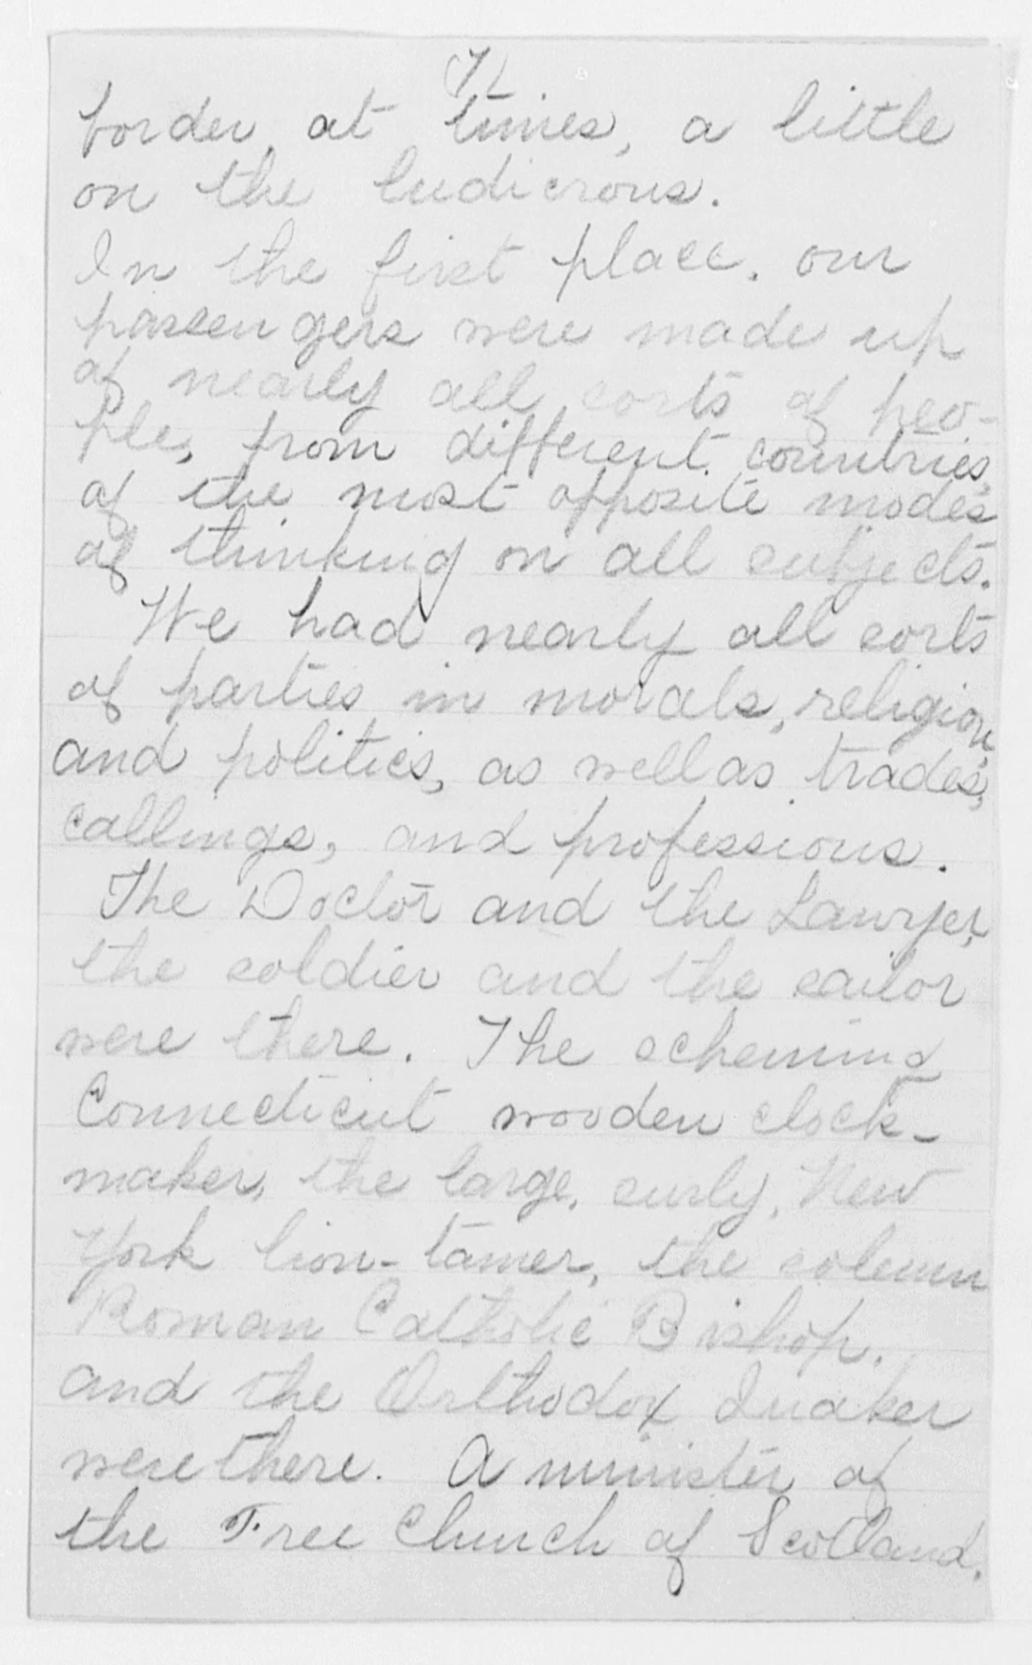 border, at times, a little
on the ludicrous.
In the first place, our
passengers were made up
of nearly all sorts of peo-
ple, from different countries,
of the most opposite modes
of thinking on all subjects.
We had nearly all sorts
of parties in morals, religion,
and politics, as well as trades,
callings, and professions.
The Doctor and the Lawyer,
the soldier and the sailor
were there. The scheming
Connecticut wooden clock-
maker, the large, surly, New
York lion-tamer, the solemn
Roman Catholic Bishop,
and the Orthodox Quaker
were there. A minister of
the Free Church of Scotland,